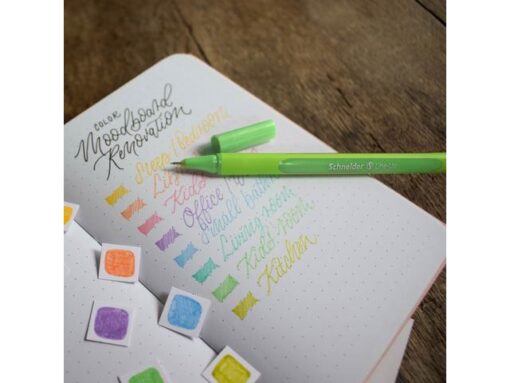 COLOR
Moodboard
Renovation
Sleep/Bedroom
Kids
Office
Small
Living room
Kid's room
Kitchen
Schneider